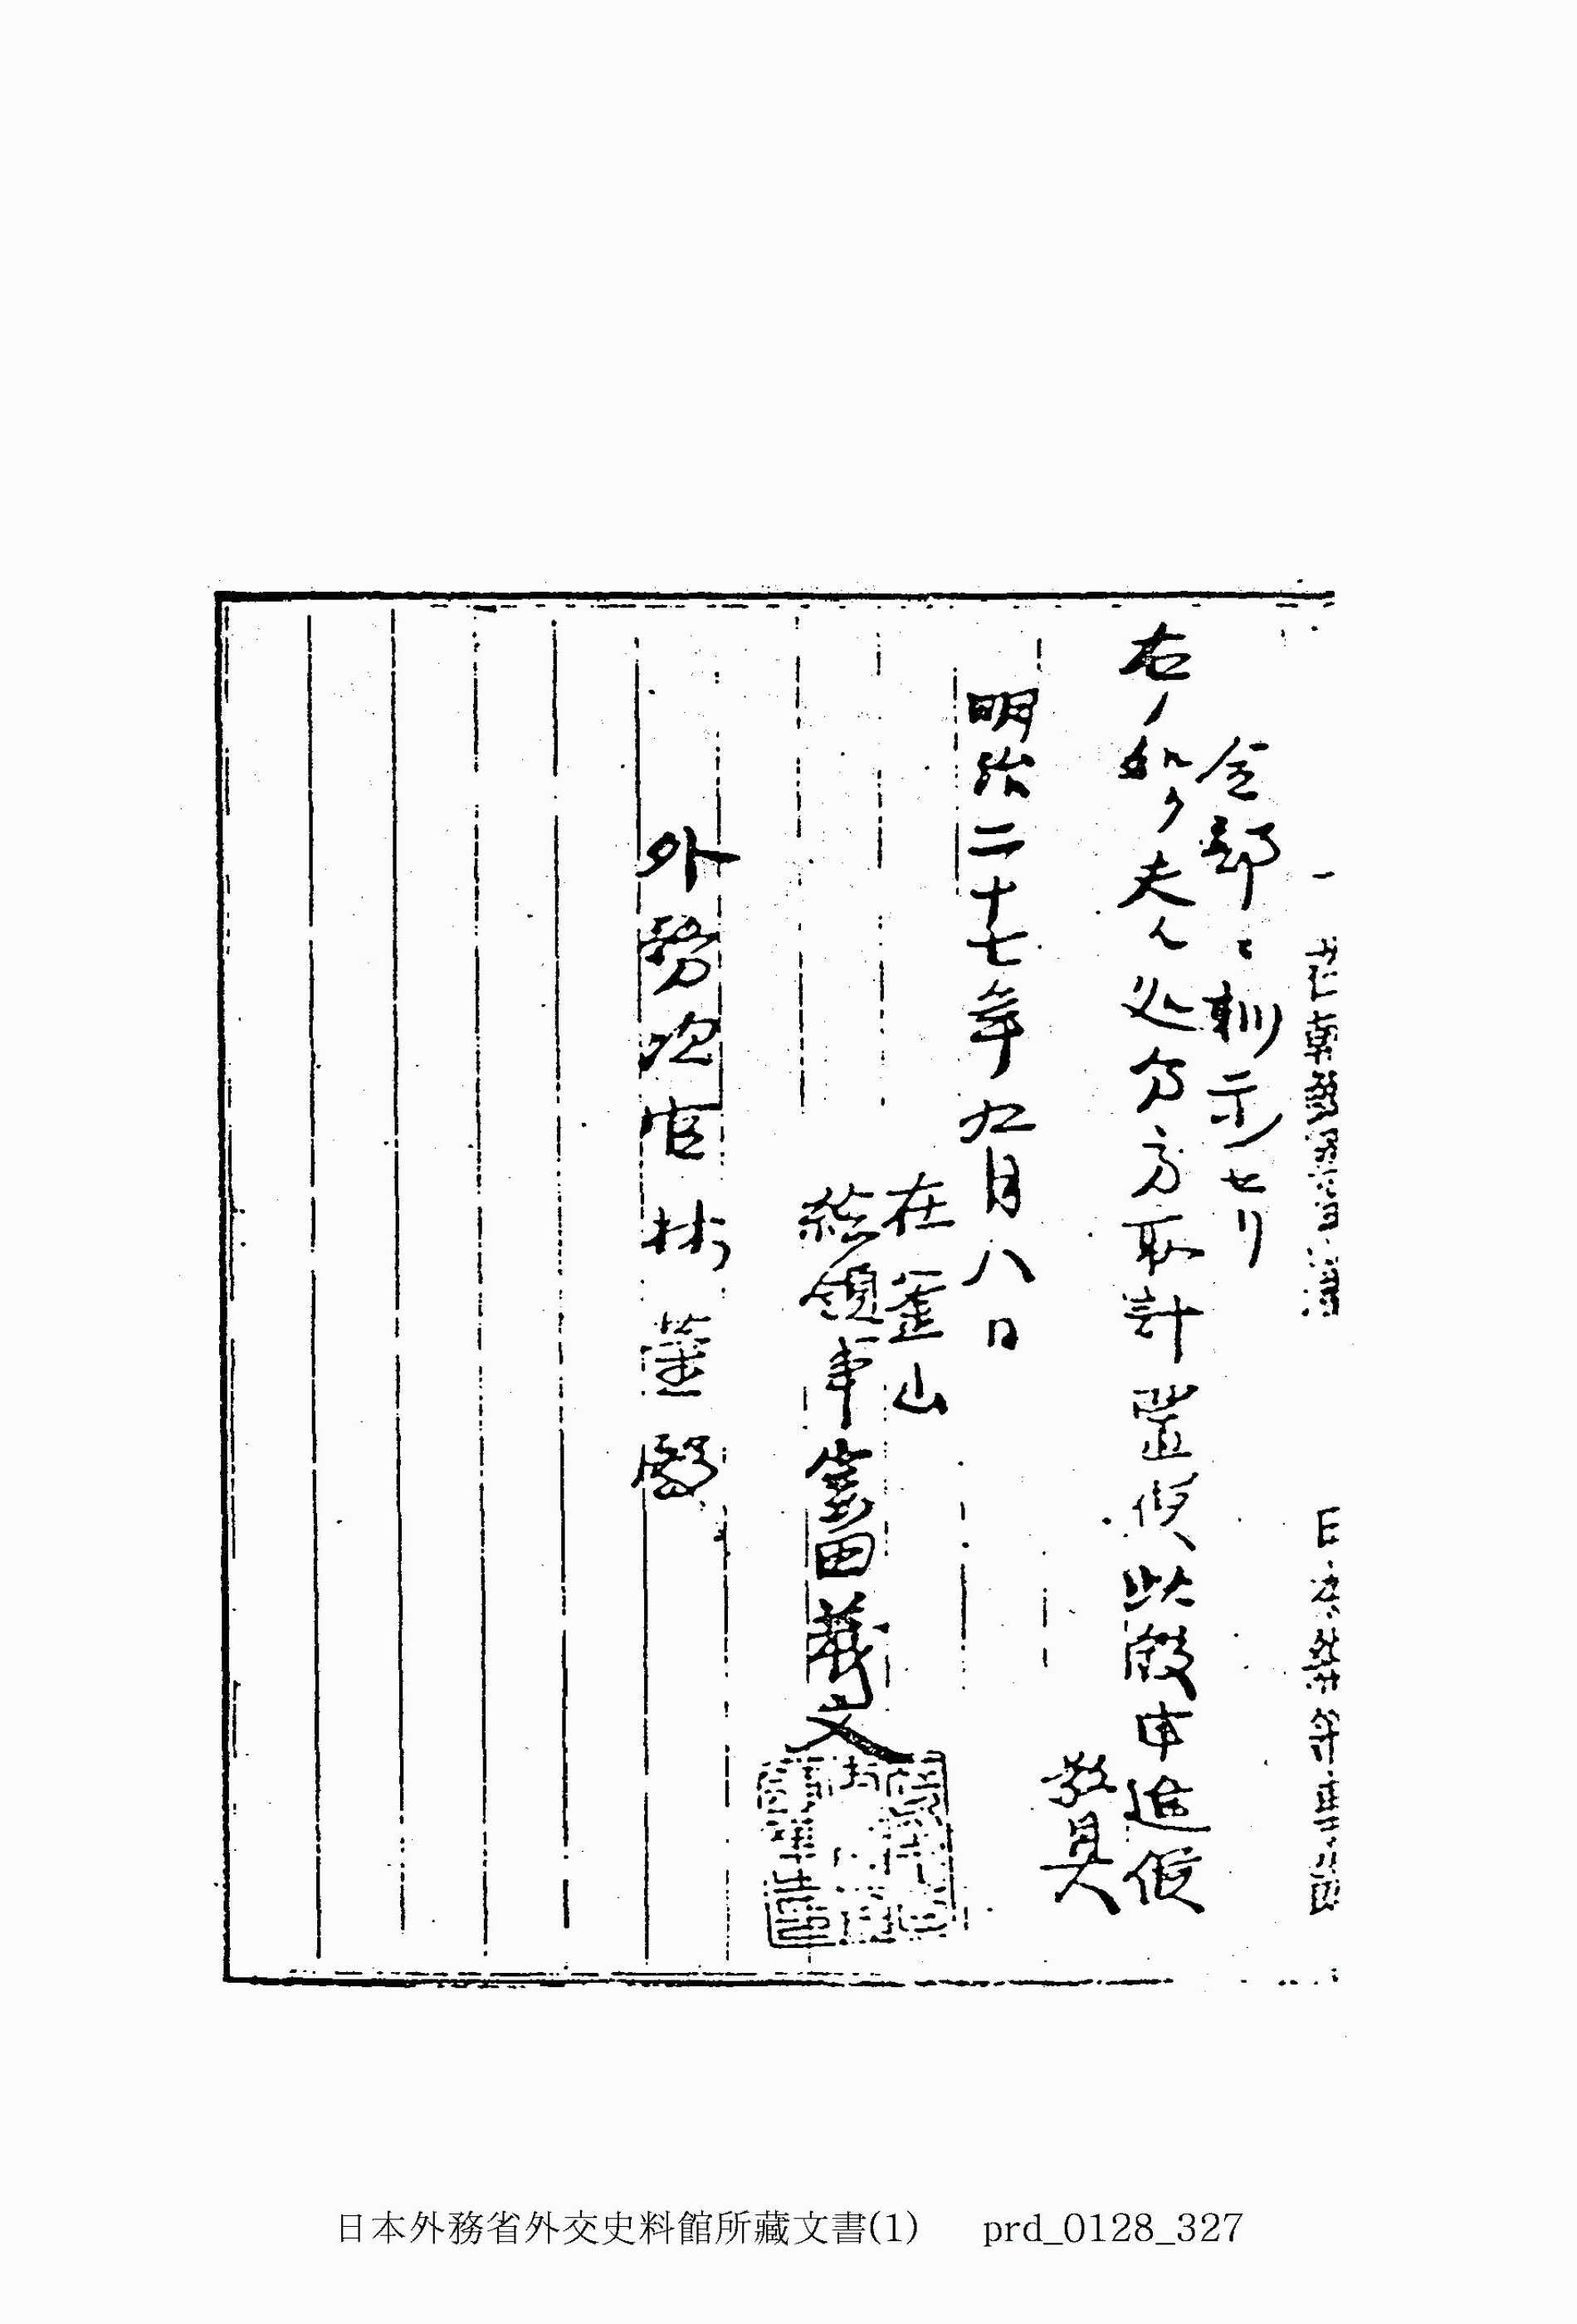 全部ニ訓示セリ
右ノ如ク夫々処分方取計置候此段申進候
敬具
明治二十七年九月八日
在釜山
総領事室田義文
外務次官林董殿
日本外務省外交史料館所藏文書(1) prd_0128_327